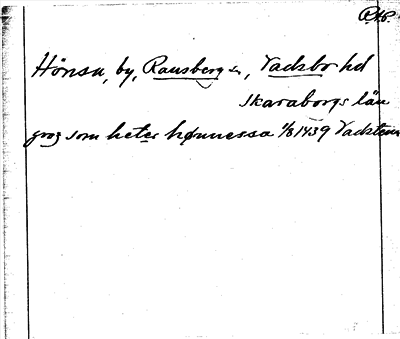 P.HP.
Hönsa, by, Ransbergs sn, Vadsbo hd
Skaraborgs län
som heter hønnessa 1/8 1439 Vadstena